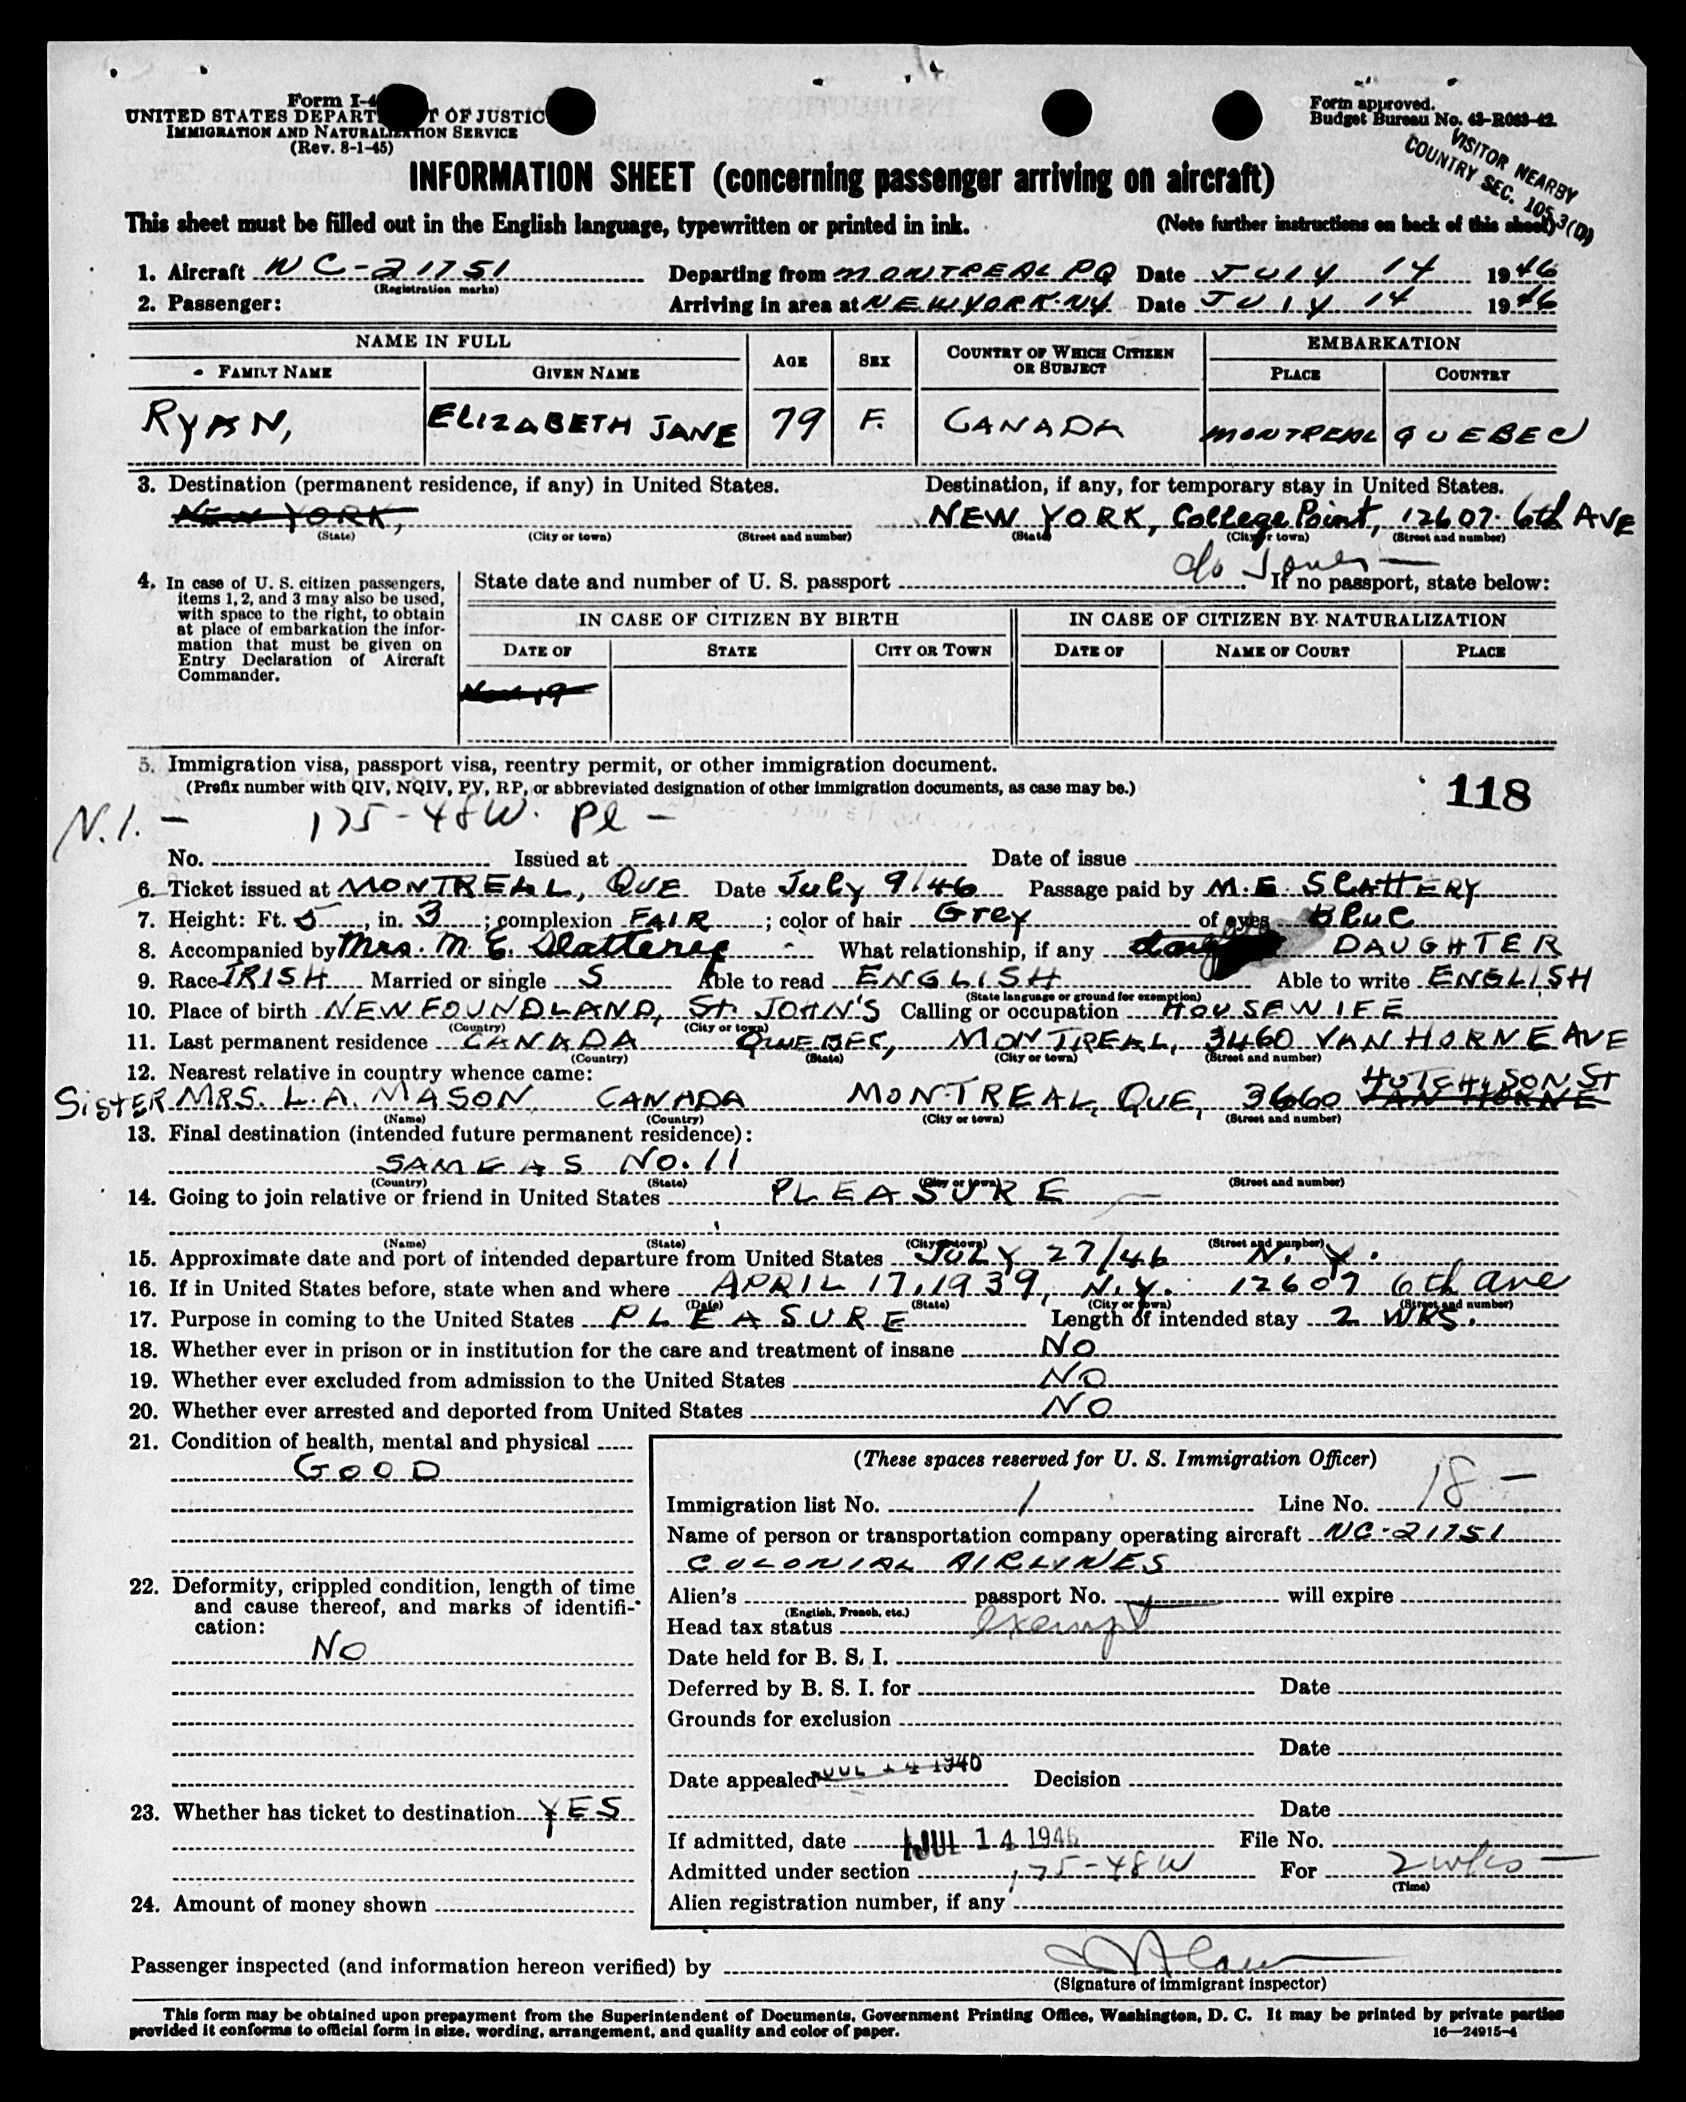 Form I-4
UNITED STATES DEPART T OF JUSTIC
IMMIGRATION AND NATURALIZATION SERVICE
(Rev. 8-1-45)
Form approved.
Budget Bureau No. 43-R083-42.
VISITOR NEARBY
COUNTRY SEC. 105.3(D)
INFORMATION SHEET (concerning passenger arriving on aircraft)
This sheet must be filled out in the English language, typewritten or printed in ink. (Note further instructions on back of this sheet)
1. Aircraft NC-21751 Departing from MONTREAL PQ Date JULY 14 1946
(Registration marks)
2. Passenger: Arriving in area at NEW YORK-NY Date JULY 14 1946
NAME IN FULL AGE SEX COUNTRY OF WHICH CITIZEN OR SUBJECT EMBARKATION
FAMILY NAME GIVEN NAME PLACE COUNTRY
RYAN, ELIZABETH JANE 79 F. CANADA MONTREAL QUEBEC
3. Destination (permanent residence, if any) in United States. Destination, if any, for temporary stay in United States.
NEW YORK, NEW YORK, College Point, 12607. 6th AVE
(State) (City or town) (Street and number) (State) (City or town) (Street and number)
c/o Jones —
4. In case of U. S. citizen passengers, items 1, 2, and 3 may also be used, with space to the right, to obtain at place of embarkation the information that must be given on Entry Declaration of Aircraft Commander.
State date and number of U. S. passport If no passport, state below:
IN CASE OF CITIZEN BY BIRTH IN CASE OF CITIZEN BY NATURALIZATION
DATE OF STATE CITY OR TOWN DATE OF NAME OF COURT PLACE
5. Immigration visa, passport visa, reentry permit, or other immigration document.
(Prefix number with QIV, NQIV, PV, RP, or abbreviated designation of other immigration documents, as case may be.) 118
N.I. — 175-48W. Pl —
No. Issued at Date of issue
6. Ticket issued at MONTREAL, QUE Date July 9.46 Passage paid by M.E. SLATTERY
7. Height: Ft. 5, in. 3; complexion FAIR; color of hair Grey of eyes Blue
8. Accompanied by Mrs. M. E. Slattery What relationship, if any DAUGHTER
9. Race IRISH Married or single S Able to read ENGLISH Able to write ENGLISH
(State language or ground for exemption)
10. Place of birth NEWFOUNDLAND, St. JOHN'S Calling or occupation HOUSEWIFE
(Country) (City or town)
11. Last permanent residence CANADA QUEBEC, MONTREAL, 3460 VAN HORNE AVE
(Country) (State) (City or town) (Street and number)
12. Nearest relative in country whence came:
HUTCHISON St
SiSTER MRS. L. A. MASON, CANADA MONTREAL, QUE, 3660 VAN HORNE
(Name) (Country) (City or town) (Street and number)
13. Final destination (intended future permanent residence):
SAME AS No. 11
(Country) (State) (City or town) (Street and number)
14. Going to join relative or friend in United States PLEASURE —
(Name) (State) (City or town) (Street and number)
15. Approximate date and port of intended departure from United States JULY 27/46 N.Y.
16. If in United States before, state when and where APRIL 17, 1939, N.Y. 12607 6th ave
(Date) (State) (City or town) (Street and number)
17. Purpose in coming to the United States PLEASURE Length of intended stay 2 WKS.
18. Whether ever in prison or in institution for the care and treatment of insane NO
19. Whether ever excluded from admission to the United States NO
20. Whether ever arrested and deported from United States NO
21. Condition of health, mental and physical
GOOD
22. Deformity, crippled condition, length of time and cause thereof, and marks of identification:
NO
23. Whether has ticket to destination YES
24. Amount of money shown
(These spaces reserved for U. S. Immigration Officer)
Immigration list No. 1 Line No. 18 —
Name of person or transportation company operating aircraft NC-21751
COLONIAL AIRLINES
Alien's passport No. will expire
(English, French, etc.)
Head tax status exempt
Date held for B. S. I.
Deferred by B. S. I. for Date
Grounds for exclusion
Date
Date appealed JUL 14 1946 Decision
Date
If admitted, date JUL 14 1946 File No.
Admitted under section 175-48W For 2 wks —
(Time)
Alien registration number, if any
Passenger inspected (and information hereon verified) by
(Signature of immigrant inspector)
This form may be obtained upon prepayment from the Superintendent of Documents, Government Printing Office, Washington, D. C. It may be printed by private parties
provided it conforms to official form in size, wording, arrangement, and quality and color of paper. 16—24915-4